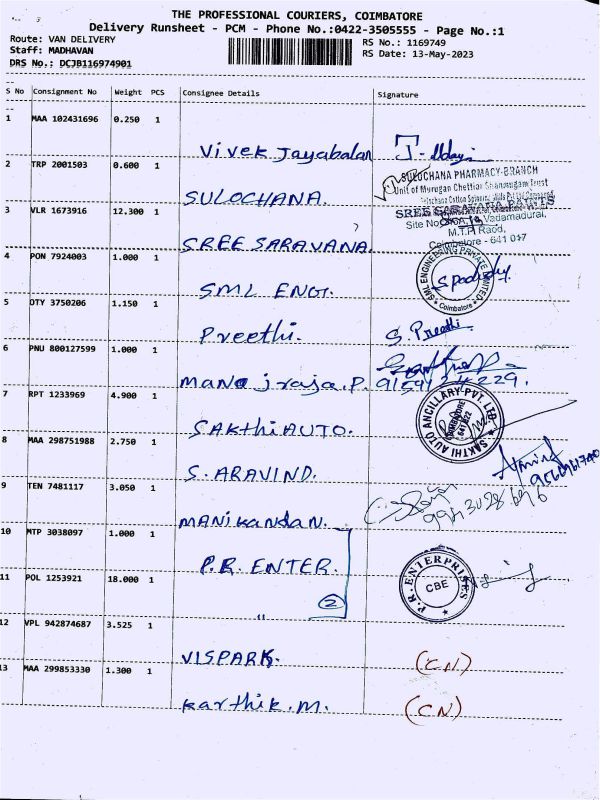 THE PROFESSIONAL COURIERS, COIMBATORE
Delivery Runsheet - PCM - Phone No.:0422-3505555 - Page No.:1
Route: VAN DELIVERY
RS No.: 1169749
Staff: MADHAVAN
RS Date: 13-May-2023
DRS No.: DCJB116974901
S No Consignment No Weight PCS Consignee Details Signature
1 MAA 102431696 0.250 1
Vivek Jayabalan
2 TRP 2001503 0.600 1
SULOCHANA PHARMACY-BRANCH
Unit of Murugan Chettiar Shanmugam Trust
SULOCHANA.
3 VLR 1673916 12.300 1
SREE SARAVANA PAINTS
Vadamadurai,
M.T.P. Raod,
SREE SARAVANA.
Coimbatore - 641 017
4 PON 7924003 1.000 1
SML ENGINEERING PRIVATE LIMITED
Coimbatore
SML ENGT.
5 DTY 3750206 1.150 1
Preethi.
S. Preethi
6 PNU 800127599 1.000 1
Manojraja.P.
7 RPT 1233969 4.900 1
SAKTHI AUTO ANCILLARY PVT. LTD.
SAKthi AUTO.
8 MAA 298751988 2.750 1
S. ARAVIND.
9 TEN 7481117 3.050 1
MANikandan.
10 MTP 3038097 1.000 1
P.R. ENTER.
11 POL 1253921 18.000 1
P.R. ENTERPRISES
CBE
2
"
12 VPL 942874687 3.525 1
VISPARK.
(CN)
13 MAA 299853330 1.300 1
Karthik.M.
(CN)